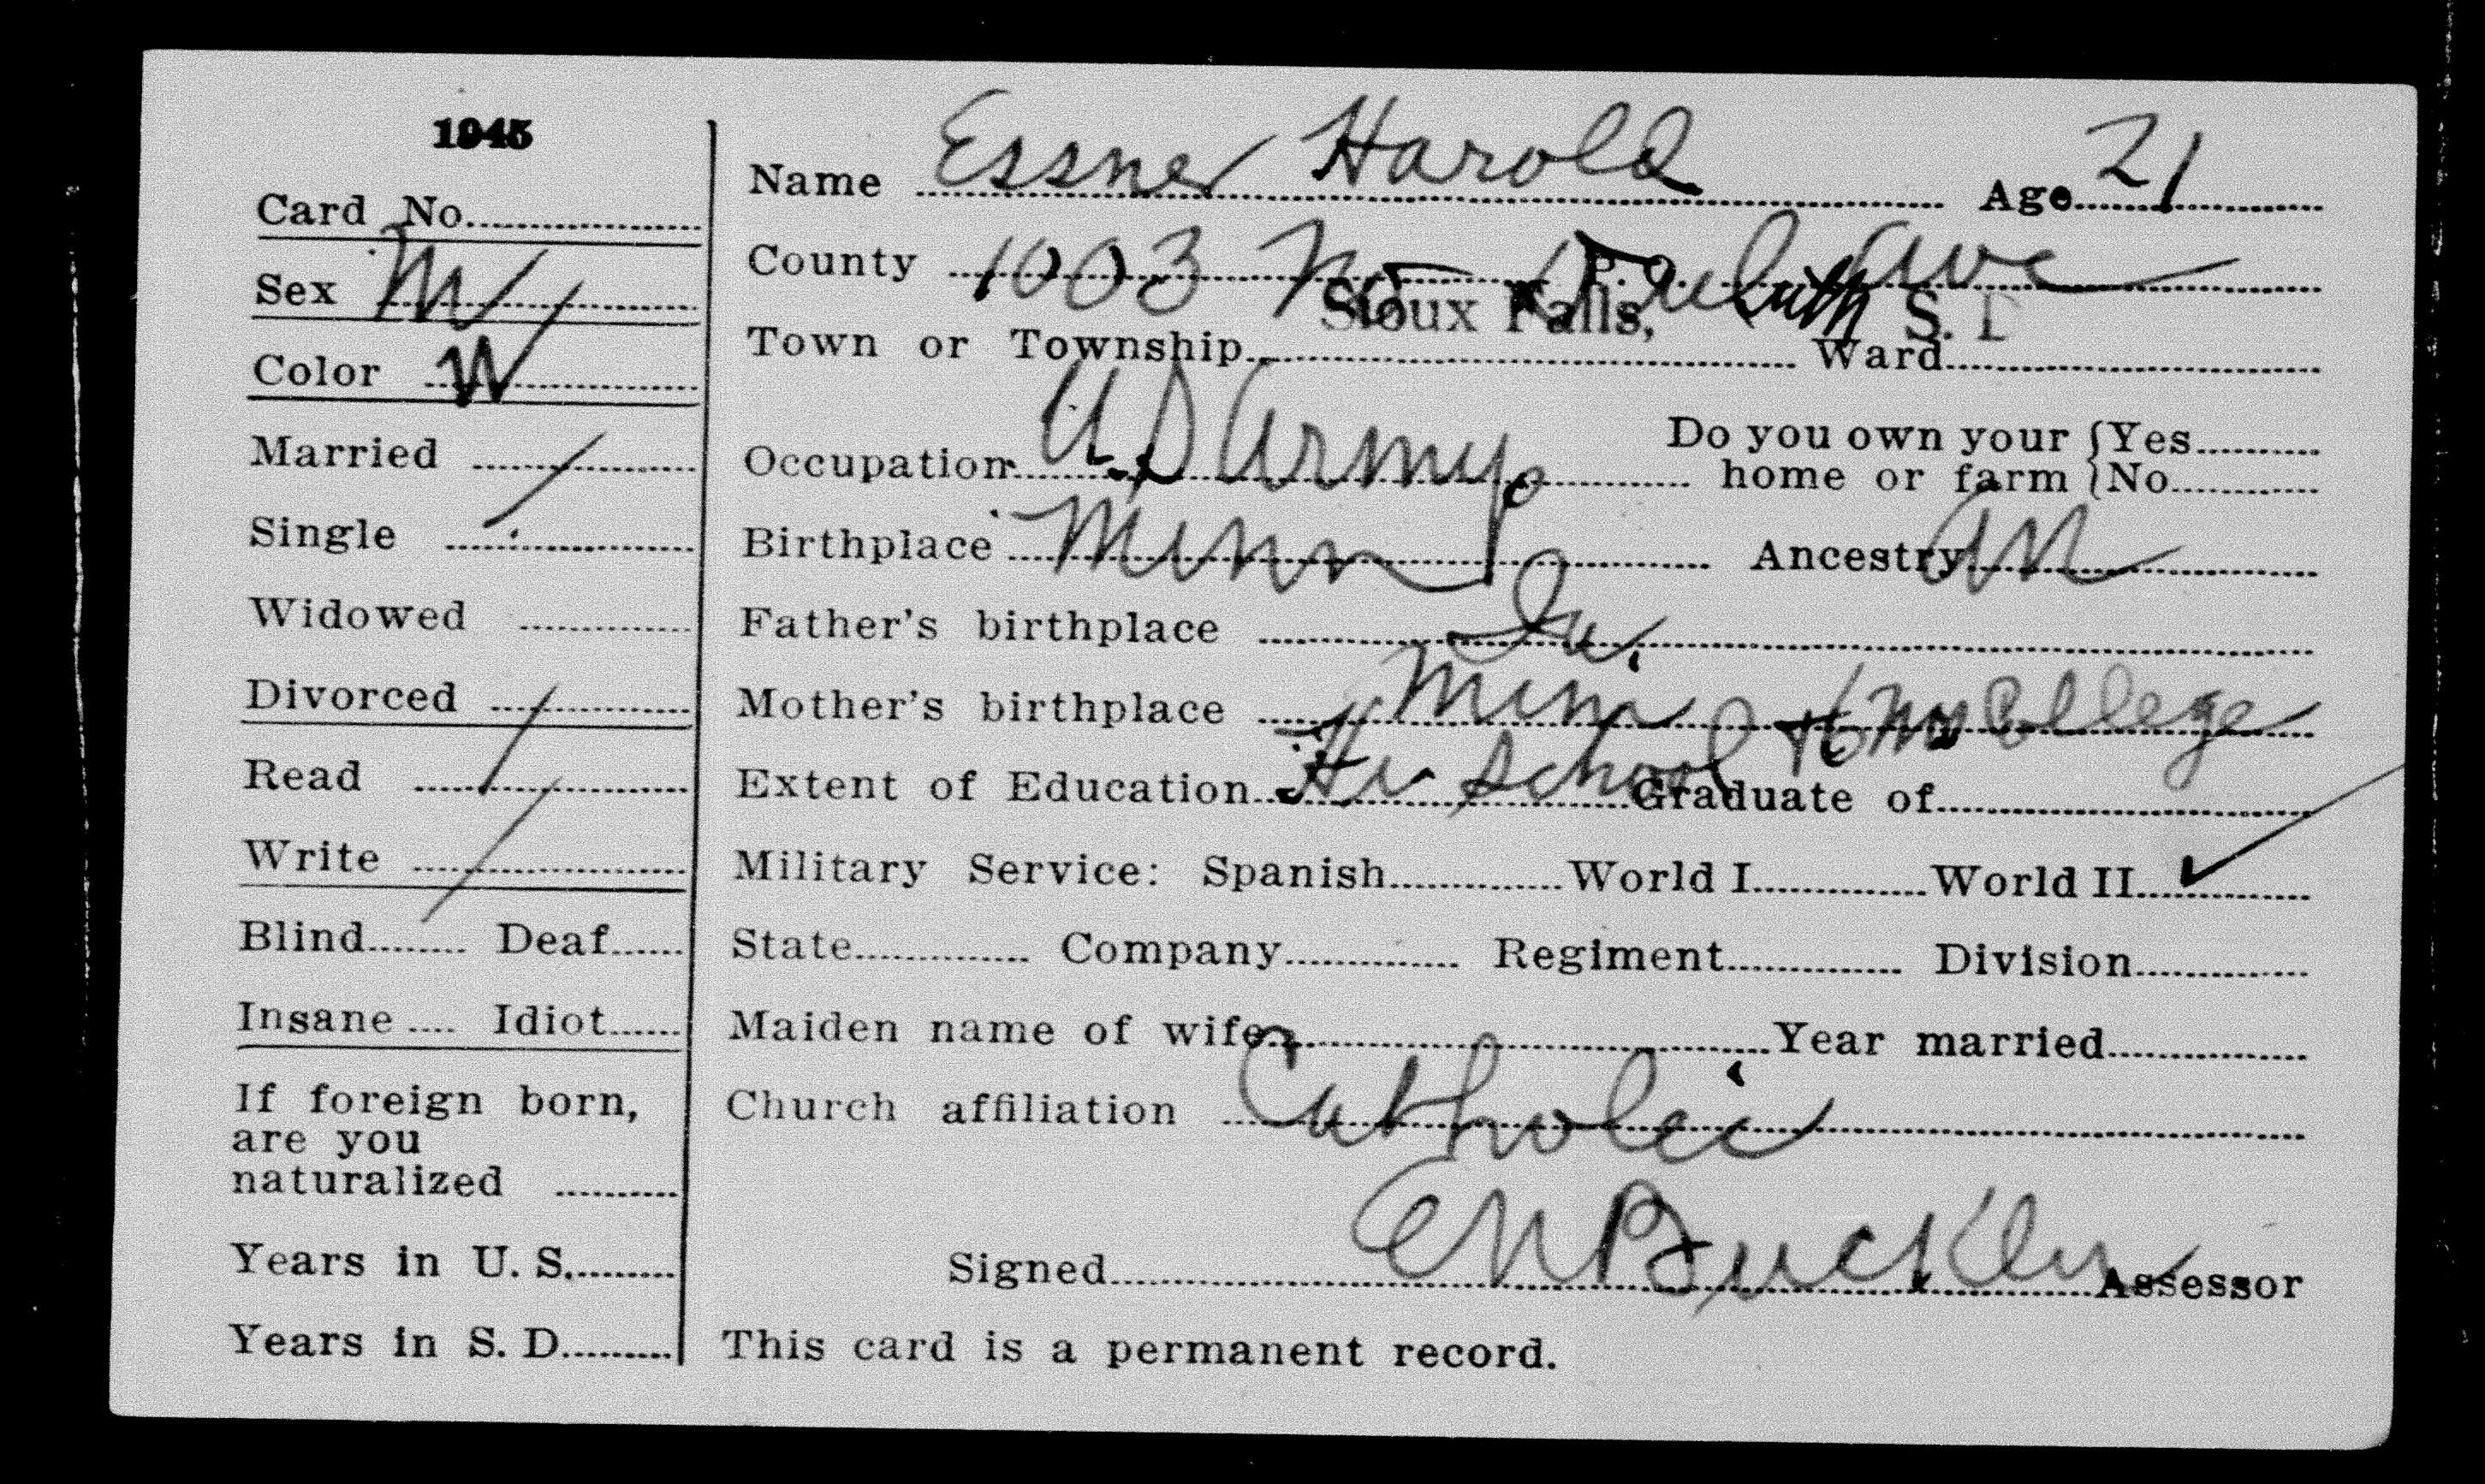 1945
Card No.
Sex M
Color W
Married
Single /
Widowed
Divorced
Read /
Write /
Blind Deaf
Insane Idiot
If foreign born,
are you
naturalized
Years in U. S.
Years in S. D.
Name Essner Harold Age 21
County 1003 No Duluth Ave P. O.
Sioux Falls, S. D
Town or Township Ward
Occupation U.S Army
Do you own your Yes
home or farm No
Birthplace Minn Ancestry Am
Father's birthplace Ia.
Mother's birthplace Minn
Extent of Education Hi School 6 Mo College Graduate of
Military Service: Spanish World I World II ✓
State Company Regiment Division
Maiden name of wife Year married
Church affiliation Catholic
Signed Assessor
This card is a permanent record.